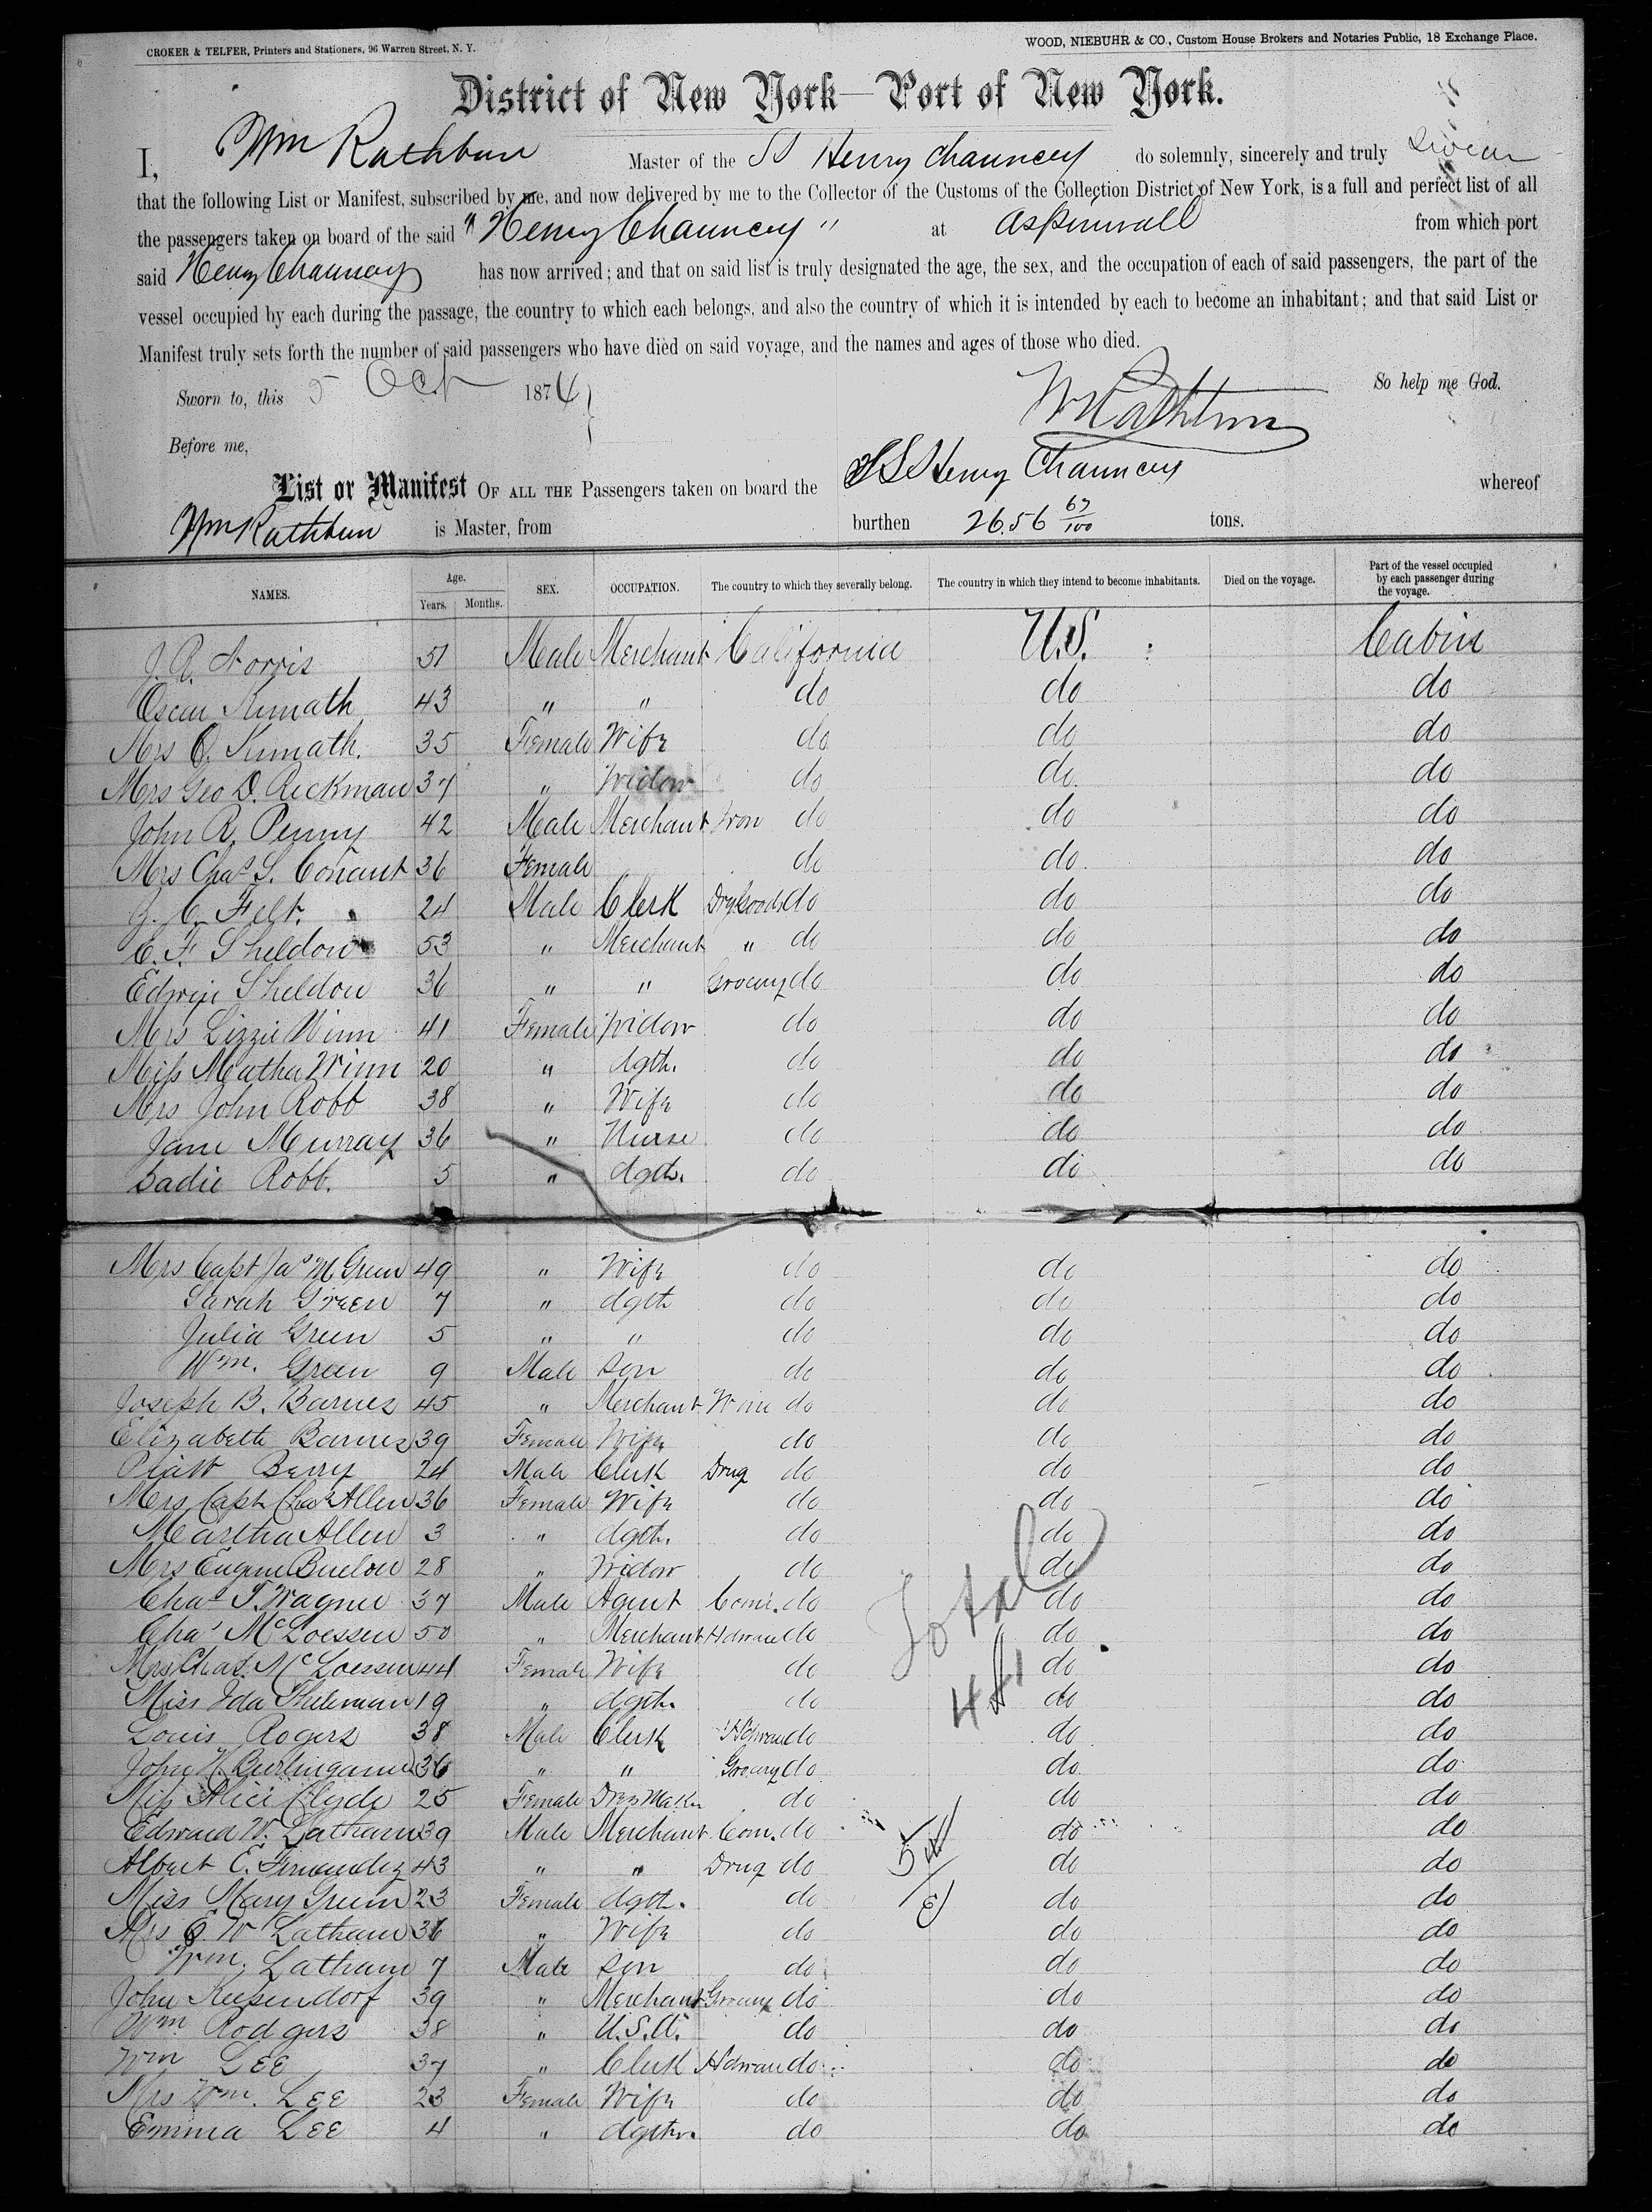 CROKER & TELFER, Printers and Stationers, 96 Warren Street, N. Y.
WOOD, NIEBUHR & CO., Custom House Brokers and Notaries Public, 18 Exchange Place.
District of New York—Port of New York.
I, Wm Rathbun Master of the SS Henry Chauncey do solemnly, sincerely and truly swear
that the following List or Manifest, subscribed by me, and now delivered by me to the Collector of the Customs of the Collection District of New York, is a full and perfect list of all
the passengers taken on board of the said "Henry Chauncey" at Aspinwall from which port
said Henry Chauncey has now arrived; and that on said list is truly designated the age, the sex, and the occupation of each of said passengers, the part of the
vessel occupied by each during the passage, the country to which each belongs, and also the country of which it is intended by each to become an inhabitant; and that said List or
Manifest truly sets forth the number of said passengers who have died on said voyage, and the names and ages of those who died.
Sworn to, this 5 Oct 1874 So help me God.
W Rathbun
Before me,
List or Manifest OF ALL THE Passengers taken on board the SS Henry Chauncey whereof
Wm Rathbun is Master, from burthen 26.56 67/100 tons.
NAMES. Age. Years. Months. SEX. OCCUPATION. The country to which they severally belong. The country in which they intend to become inhabitants. Died on the voyage. Part of the vessel occupied by each passenger during the voyage.
J. A. Norris 51 Male Merchant California U.S. Cabin
Oscar Kunath 43 " " do do do
Mrs O. Kunath. 35 Female Wife do do do
Mrs Geo D. Rickman 37 " Widow do do do
John R. Penny 42 Male Merchant Iron do do do
Mrs Chas S. Conant 36 Female do do do
G. C. Felt. 24 Male Clerk Dry Goods do do do
C. F. Sheldon 53 " Merchant " do do do
Edwin Sheldon 36 " " Grocery do do do
Mrs Lizzie Winn 41 Female Widow do do do
Miss Matha Winn 20 " dgth. do do do
Mrs John Robb 38 " Wife do do do
Jane Murray 36 " Nurse do do do
Sadie Robb. 5 " dgth. do do do
Mrs Capt Jas M Green 49 " Wife do do do
Sarah Green 7 " dgth do do do
Julia Green 5 " " do do do
Wm. Green 9 Male Son do do do
Joseph B. Barnes 45 " Merchant Wine do do do
Elizabeth Barnes 39 Female Wife do do do
Piatt Berry 24 Male Clerk Drug do do do
Mrs Capt Chas Allen 36 Female Wife do do do
Martha Allen 3 " dgth. do do do
Mrs Eugene Buelow 28 " Widow do do do
Chas T. Wagner 37 Male Agent Com. do do do
Chas McLoessen 50 " Merchant Hdware do do do
Mrs Chas. McLoessen 44 Female Wife do do do
Miss Ida Thileman 19 " dgth. do do do
Louis Rogers 38 Male Clerk Hdware do do do
John N. Burlingame 36 " " Grocery do do do
Miss Alice Clyde 25 Female Dress Maker do do do
Edward W. Latham 39 Male Merchant Com. do do do
Albert E. Fernandez 43 " " Drug do do do
Miss Mary Green 23 Female dgth. do do do
Mrs E. W Latham 36 " Wife do do do
Wm. Latham 7 Male Son do do do
John Keesendorf 39 " Merchant Grocery do do do
Wm Rodgers 38 " U.S.A. do do do
Wm LEE 37 " Clerk Hdware do do do
Mrs Wm. LEE 23 Female Wife do do do
Emma LEE 4 " dgthr. do do do
Total
441